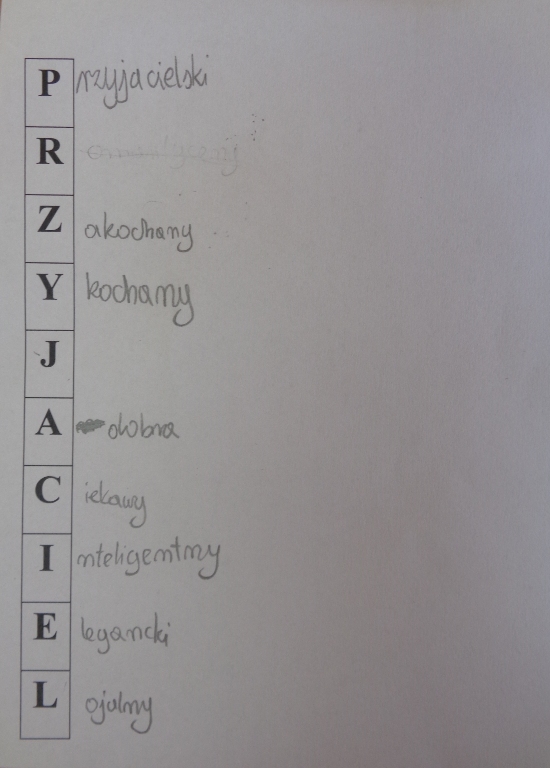 Przyjacielski
Romantyczny
Zakochany
Y kochany
J
A dobra
Ciekawy
Inteligentny
Elegancki
Lojalny